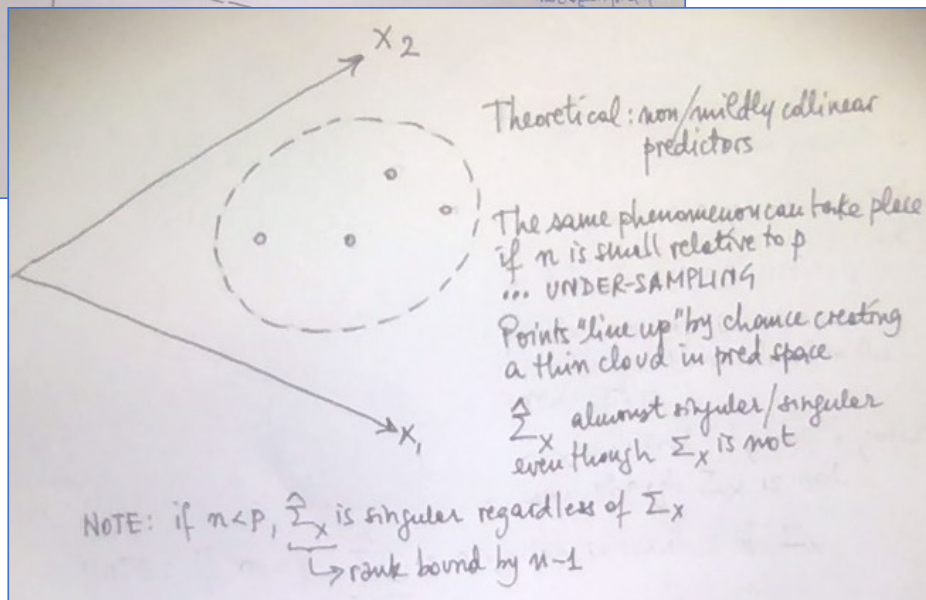 X2
Theoretical: non/mildly collinear
predictors
The same phenomenon can take place
if n is small relative to p
... UNDER-SAMPLING
Points "line up" by chance creating
a thin cloud in pred space
Σ̂X almost singular/singular
even though ΣX is not
X1
NOTE: if n<p, Σ̂X is singular regardless of ΣX
↳ rank bound by n-1